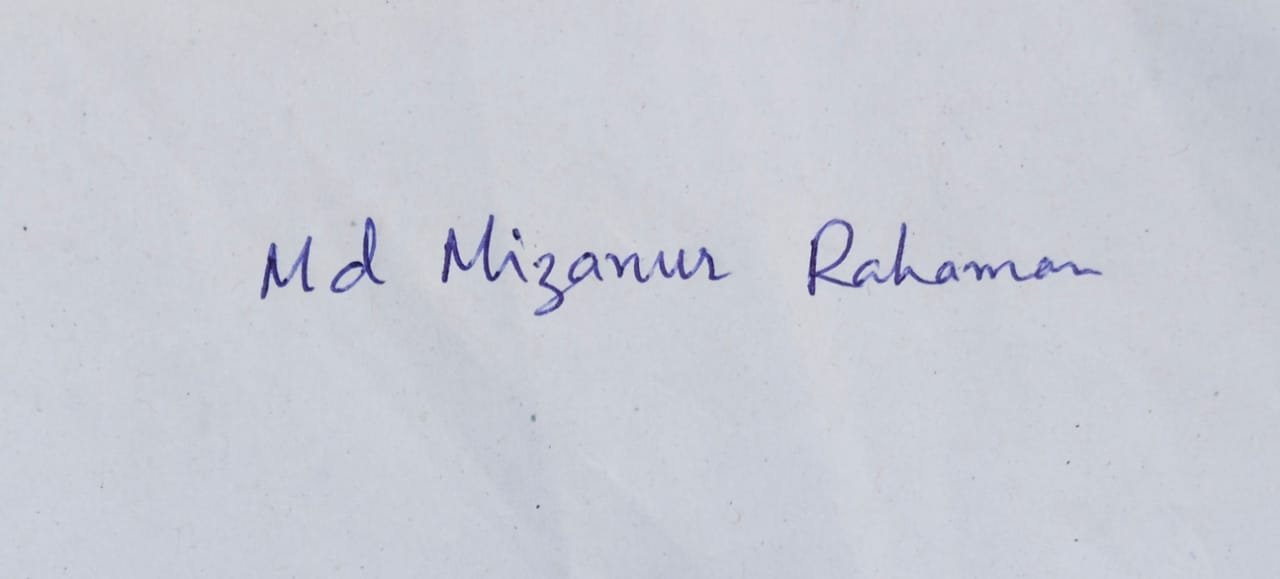 Md Mizanur Rahaman